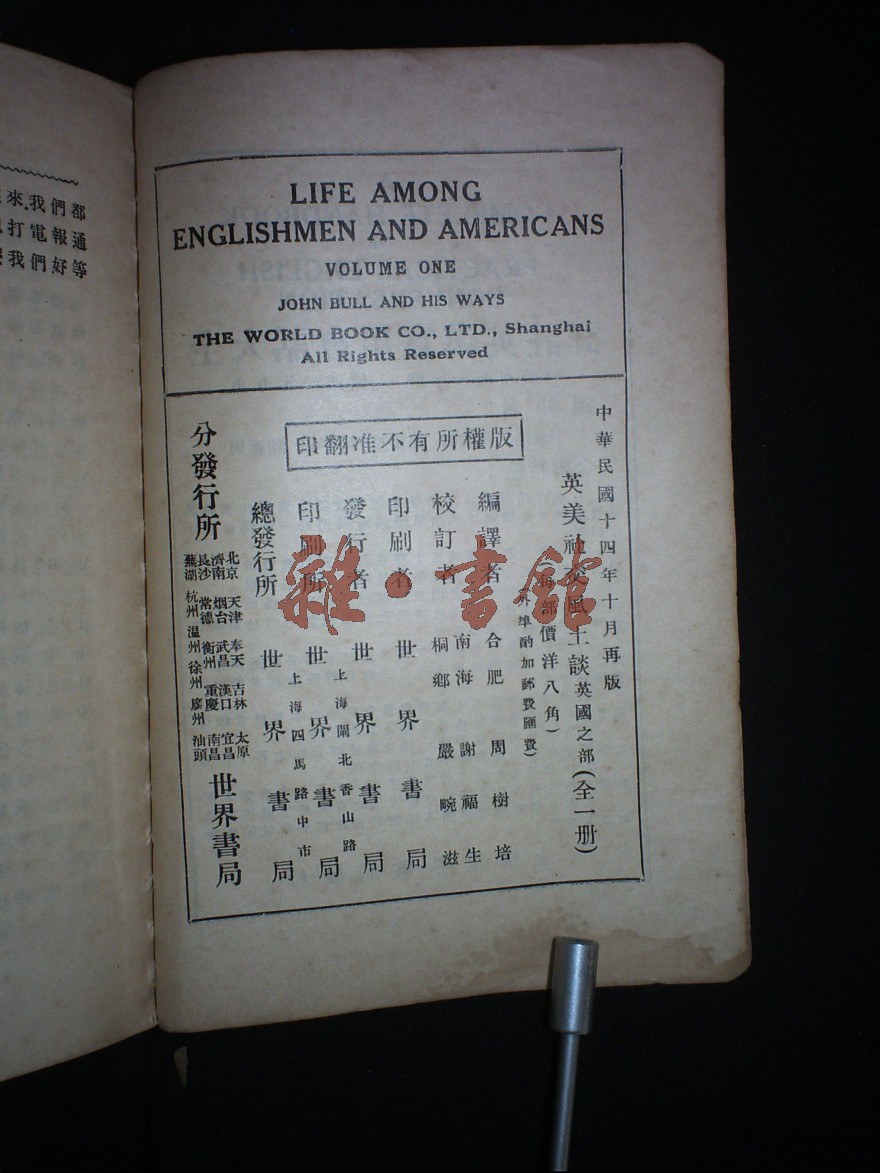 來.我們都
打電報通
我們好等
LIFE AMONG
ENGLISHMEN AND AMERICANS
VOLUME ONE
JOHN BULL AND HIS WAYS
THE WORLD BOOK CO., LTD., Shanghai
All Rights Reserved
印翻准不有所權版
中華民國十四年十月再版
英美社交風土談英國之部(全一册)
(每部價洋八角)
(外埠酌加郵費匯費)
編譯者 合肥 周樹培
校訂者 南海 謝福生
桐鄉 嚴畹滋
印刷者 世界書局
發行者 世界書局
上海閘北香山路
印刷所 世界書局
上海四馬路中市
總發行所 世界書局
分發行所
北京 天津 奉天 吉林 太原
濟南 烟台 武昌 漢口 宜昌
長沙 常德 衡州 重慶 南昌
蕪湖 杭州 温州 徐州 廣州 汕頭
世界書局
雜·書館